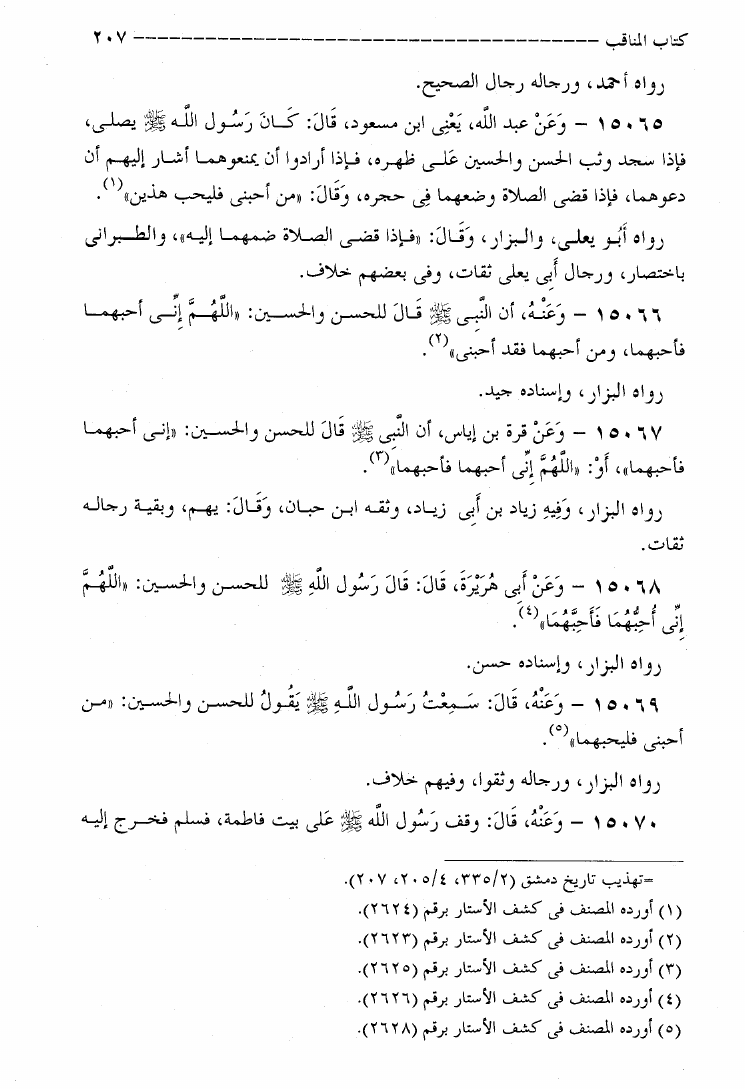 كتاب المناقب ---------------------------------------- ٢٠٧
رواه أحمد، ورجاله رجال الصحيح.
١٥٠٦٥ - وَعَنْ عبد الله، يَعْنِى ابن مسعود، قَالَ: كَانَ رَسُول اللَّه ﷺ يصلى،
فإذا سجد وثب الحسن والحسين عَلَى ظهره، فإذا أرادوا أن يمنعوهما أشار إليهم أن
دعوهما، فإذا قضى الصلاة وضعهما فِى حجره، وَقَالَ: «من أحبنى فليحب هذين»(١).
رواه أَبُو يعلى، والبزار، وَقَالَ: «فإذا قضى الصلاة ضمهما إليه»، والطبرانى
باختصار، ورجال أَبِى يعلى ثقات، وفى بعضهم خلاف.
١٥٠٦٦ - وَعَنْهُ، أن النَّبِى ﷺ قَالَ للحسن والحسين: «اللَّهُمَّ إِنِّى أحبهما
فأحبهما، ومن أحبهما فقد أحبنى»(٢).
رواه البزار، وإسناده جيد.
١٥٠٦٧ - وَعَنْ قرة بن إياس، أن النَّبِى ﷺ قَالَ للحسن والحسين: «إنى أحبهما
فأحبهما»، أَوْ: «اللَّهُمَّ إِنِّى أحبهما فأحبهما»(٣).
رواه البزار، وَفِيهِ زياد بن أَبِى زياد، وثقه ابن حبان، وَقَالَ: يهم، وبقية رجاله
ثقات.
١٥٠٦٨ - وَعَنْ أَبِى هُرَيْرَةَ، قَالَ: قَالَ رَسُول اللَّهِ ﷺ للحسن والحسين: «اللَّهُمَّ
إِنِّى أُحِبُّهُمَا فَأَحِبَّهُمَا»(٤).
رواه البزار، وإسناده حسن.
١٥٠٦٩ - وَعَنْهُ، قَالَ: سَمِعْتُ رَسُول اللَّهِ ﷺ يَقُولُ للحسن والحسين: «من
أحبنى فليحبهما»(٥).
رواه البزار، ورجاله وثقوا، وفيهم خلاف.
١٥٠٧٠ - وَعَنْهُ، قَالَ: وقف رَسُول اللَّه ﷺ عَلَى بيت فاطمة، فسلم فخرج إليه
=تهذيب تاريخ دمشق (٣٣٥/٢، ٢٠٥/٤، ٢٠٧).
(١) أورده المصنف فى كشف الأستار برقم (٢٦٢٤).
(٢) أورده المصنف فى كشف الأستار برقم (٢٦٢٣).
(٣) أورده المصنف فى كشف الأستار برقم (٢٦٢٥).
(٤) أورده المصنف فى كشف الأستار برقم (٢٦٢٦).
(٥) أورده المصنف فى كشف الأستار برقم (٢٦٢٨).